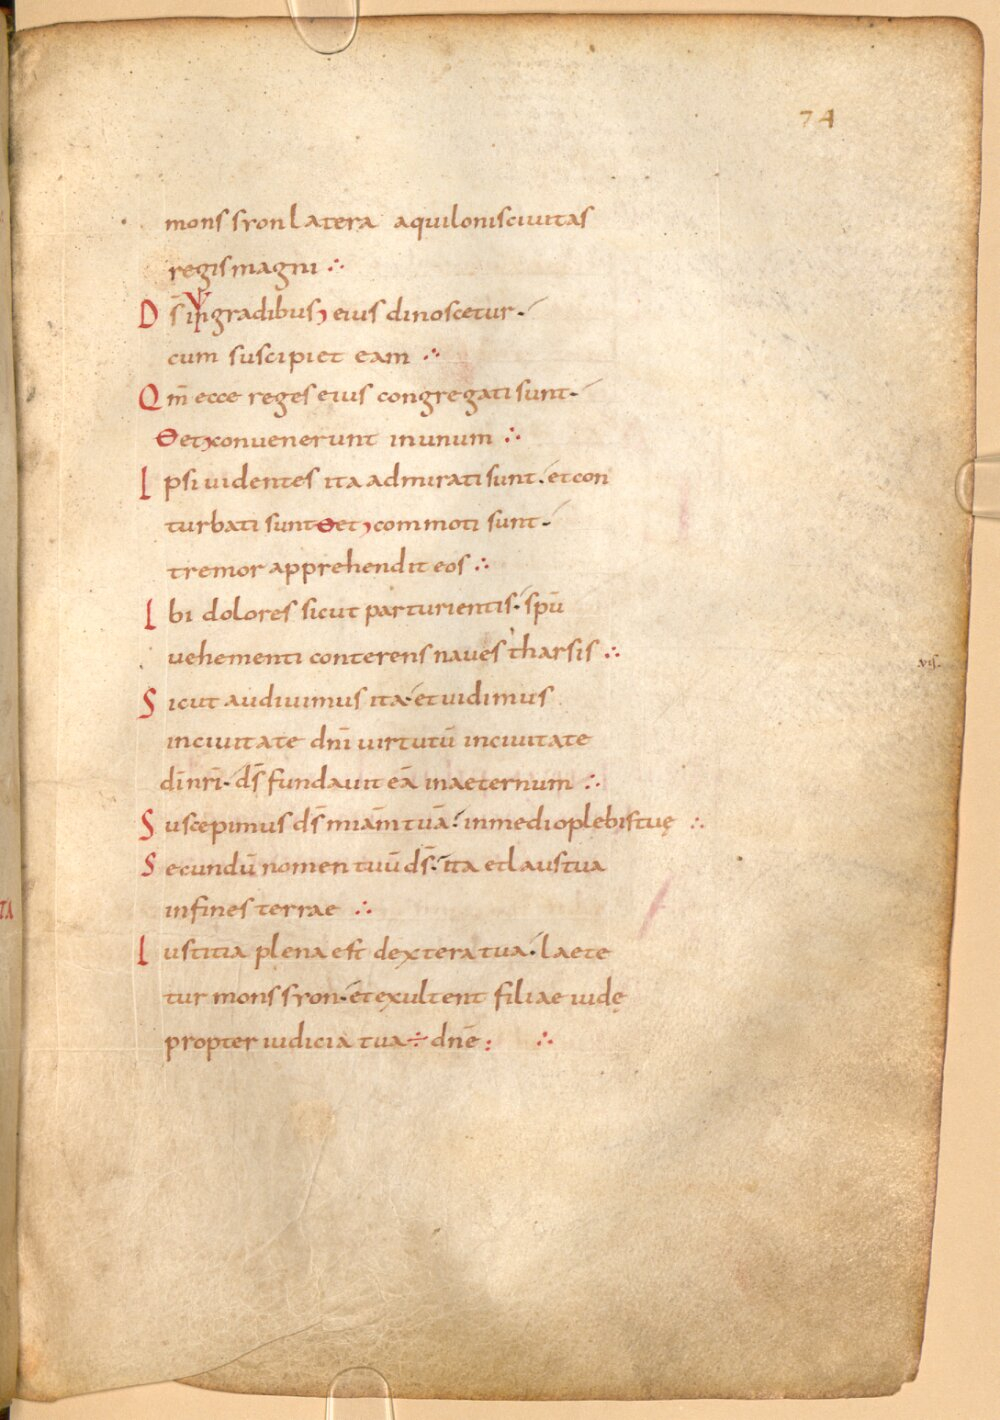 74
mons syon latera aquilonis ciuitas
regis magni ∴
Ds̄ in gradibus eius dinoscetur·
cum suscipiet eam ∴
Qm̄ ecce reges eius congregati sunt·
et conuenerunt in unum ∴
Ipsi uidentes ita admirati sunt· et con
turbati sunt et commoti sunt·
tremor apprehendit eos ∴
Ibi dolores sicut parturientis· spū
uehementi conterens naues tharsis ∴
uis.
Sicut audiuimus ita· et uidimus
in ciuitate dn̄i uirtutū in ciuitate
dī nr̄i· ds̄ fundauit eā in aeternum ∴
Suscepimus ds̄ miam̄ tuā· in medio plebis tuę ∴
Secundū nomen tuū ds̄· ita et laus tua
in fines terrae ∴
Iustitia plena est dextera tua· laete
tur mons syon· et exultent filiae iudę
propter iudicia tua ÷ dnē : ∴
TA